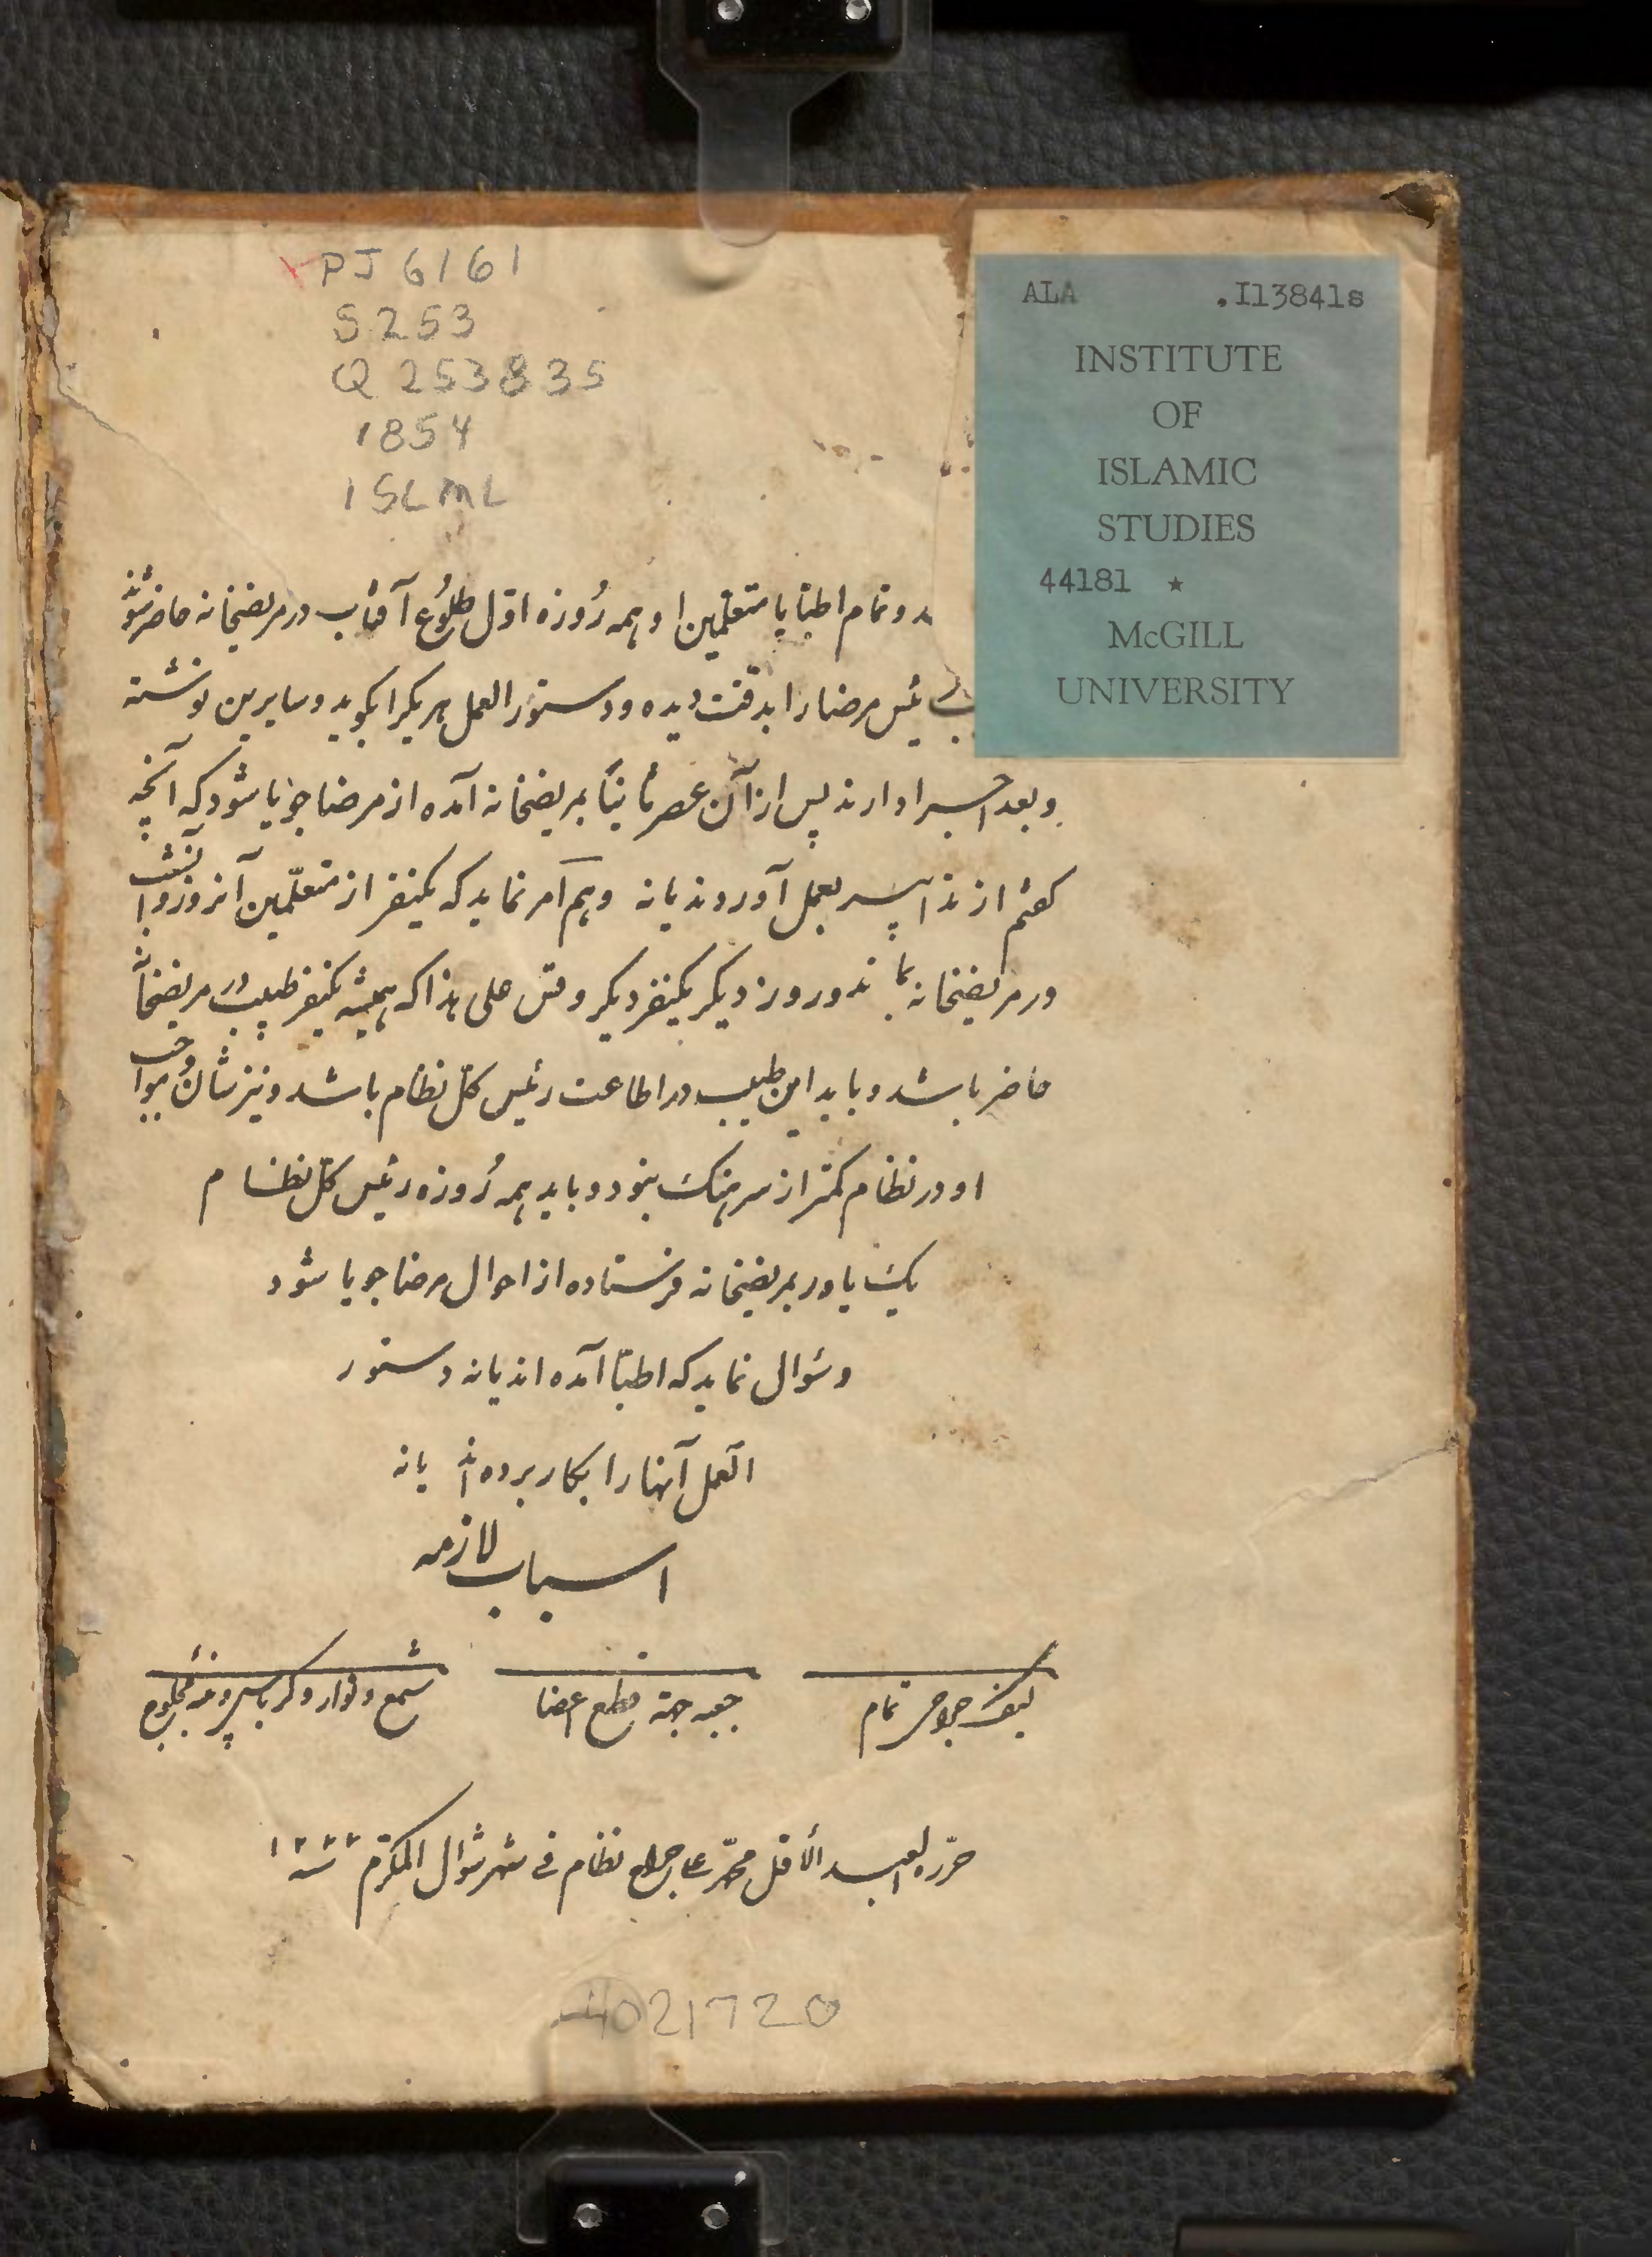 PJ 6161
S253
Q253835
1854
ISLML
ALA .I13841s
INSTITUTE
OF
ISLAMIC
STUDIES
44181 ★
McGILL
UNIVERSITY
د و تمام اطبا با متعلمین او همه رُوزه اوّل طلُوع آفتاب در مریضخانه حاضر شوند
رئیس مرضا را بدقت دیده و دستورالعمل هر یکرا بگوید و سایرین نوشته
و بعد اجرا دارند پس از آن عصر ثانیاً بمریضخانه آمده از مرضا جویا شود که آنچه
گفتم از تدابیر بعمل آوردند یا نه و هم امر نماید که یکنفر از متعلّمین آنروز و آنشب
در مریضخانه بماند و روز دیگر یکنفر دیگر و قس علی هذا که همیشه یکنفر طبیب در مریضخانه
حاضر باشد و باید این طبیب در اطاعت رئیس کل نظام باشد و نیز شان و مواجب
او در نظام کمتر از سرهنگ نبود و باید همه رُوزه رئیس کل نظام
یک یاور بمریضخانه فرستاده از احوال مرضا جویا شود
و سؤال نماید که اطبّا آمده اند یا نه دستور
العمل آنها را بکار برده اند یا نه
اسباب لازمه
کیف جراحی تمام
جعبه جهة قطع اعضا
شمع و نوار و کرباس و پنبه محلوج
حرّره العبد الأقل محمّد علی جراح نظام فی شهر شوّال المکرّم سنه ۱۲۷۰
4021720